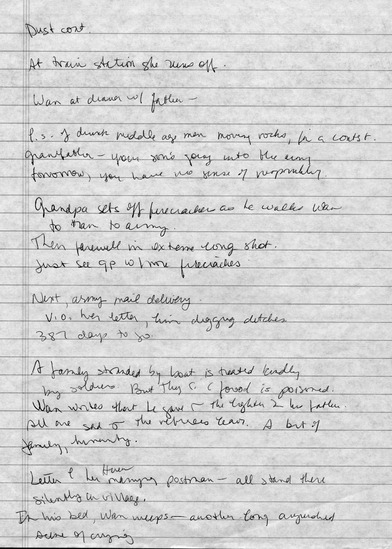 Dust cont.
At train station she runs off.
Wan at dinner w/ father –
l.s. of drunk middle age men moving rocks, for a contest.
Grandfather – your son's going into the army
tomorrow, you have no sense of responsibility
Grandpa sets off firecracker as he walks Wan
to train to army.
Then farewell in extreme long shot.
Just see gp w/ more firecrackers
Next, army mail delivery.
V.O. her letter, him digging ditches
387 days to go
A family stranded by boat is treated kindly
by soldiers. But they food is poisoned.
Wan writes that he gave the lighter his father.
All are sad the refugees leave. A bit of
family, humanity.
Letter Huen
her marrying postman – all stand there
silently in village.
In his bed, Wan weeps – another long anguished
scene of crying